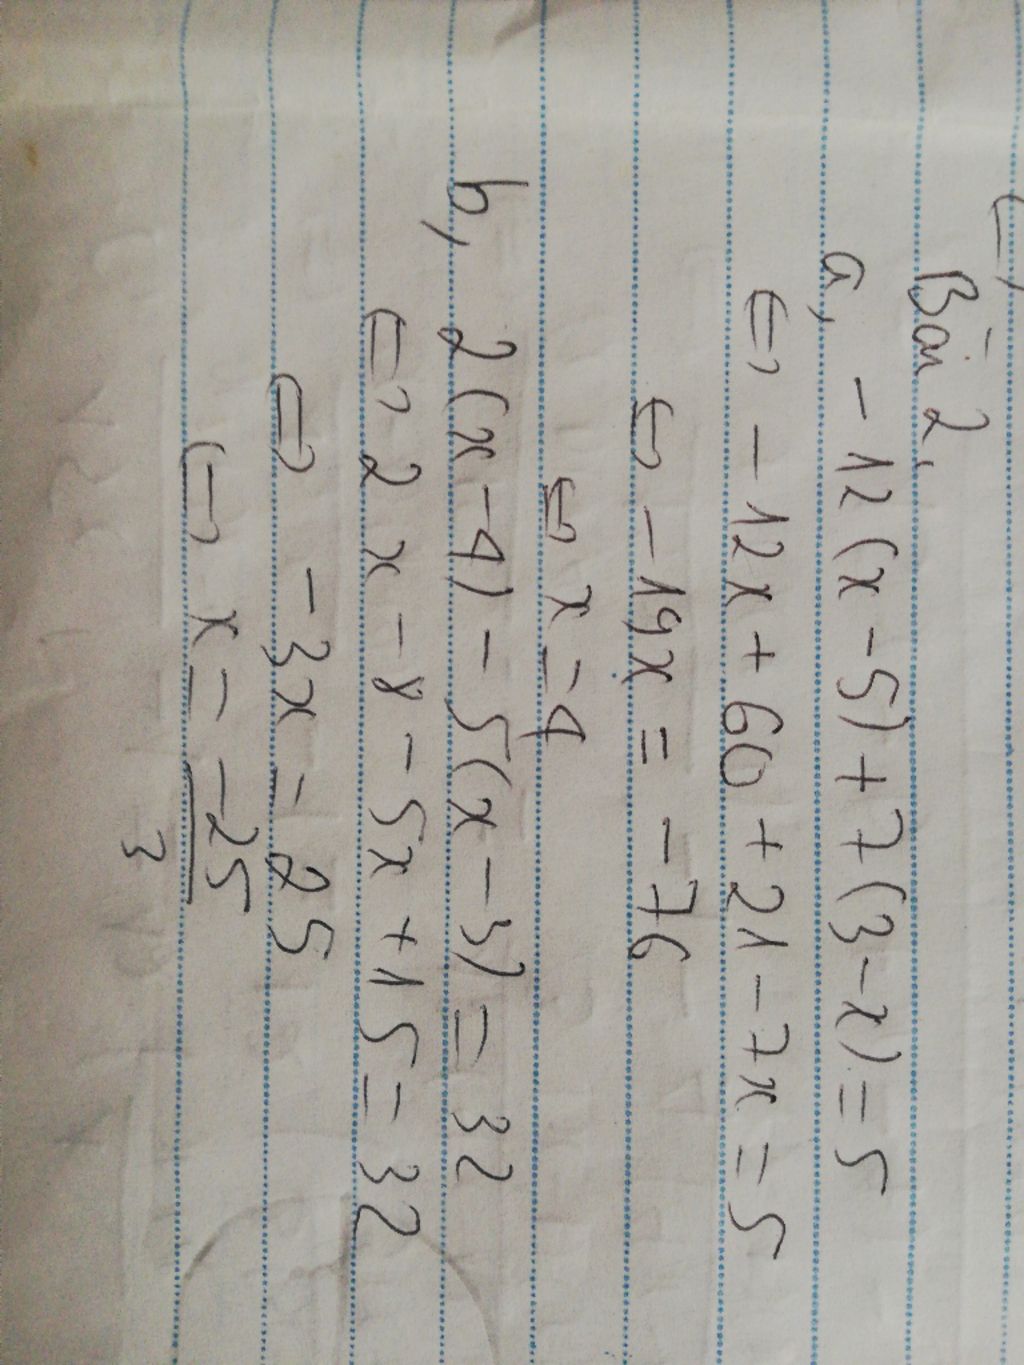 Bài 2,
a, -12(x-5)+7(3-x)=5
<=> -12x+60+21-7x=5
<=> -19x=-76
<=> x=4
b, 2(x-4)-5(x-3)=32
<=> 2x-8-5x+15=32
<=> -3x=25
<=> x=-25/3